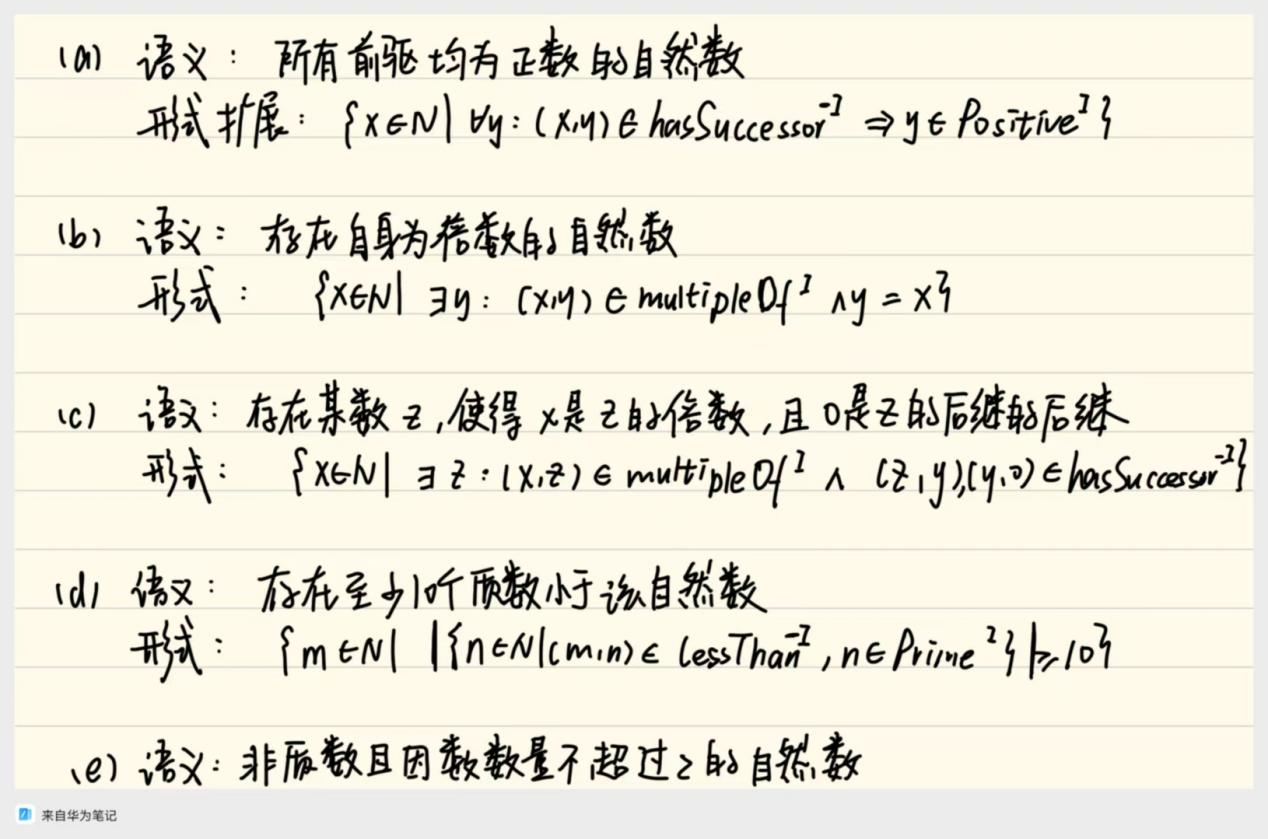 (a) 语义： 所有前驱均为正数的自然数
形式扩展： {x∈N| ∀y: (x,y)∈hasSuccessor⁻ᴵ ⇒ y∈Positiveᴵ}
(b) 语义： 存在自身为倍数的自然数
形式： {x∈N| ∃y: (x,y)∈multipleOfᴵ ∧y = x}
(c) 语义： 存在某数 z,使得 x是 z的倍数,且 0是z的后继的后继
形式： {x∈N| ∃z:(x,z)∈multipleOfᴵ ∧ (z,y),(y,0)∈hasSuccessor⁻ᴵ}
(d) 语义： 存在至少10个质数小于该自然数
形式： {m∈N| |{n∈N|(m,n)∈ lessThan⁻ᴵ, n∈Primeᴵ}|≥10}
(e) 语义: 非质数且因数数量不超过2的自然数
来自华为笔记